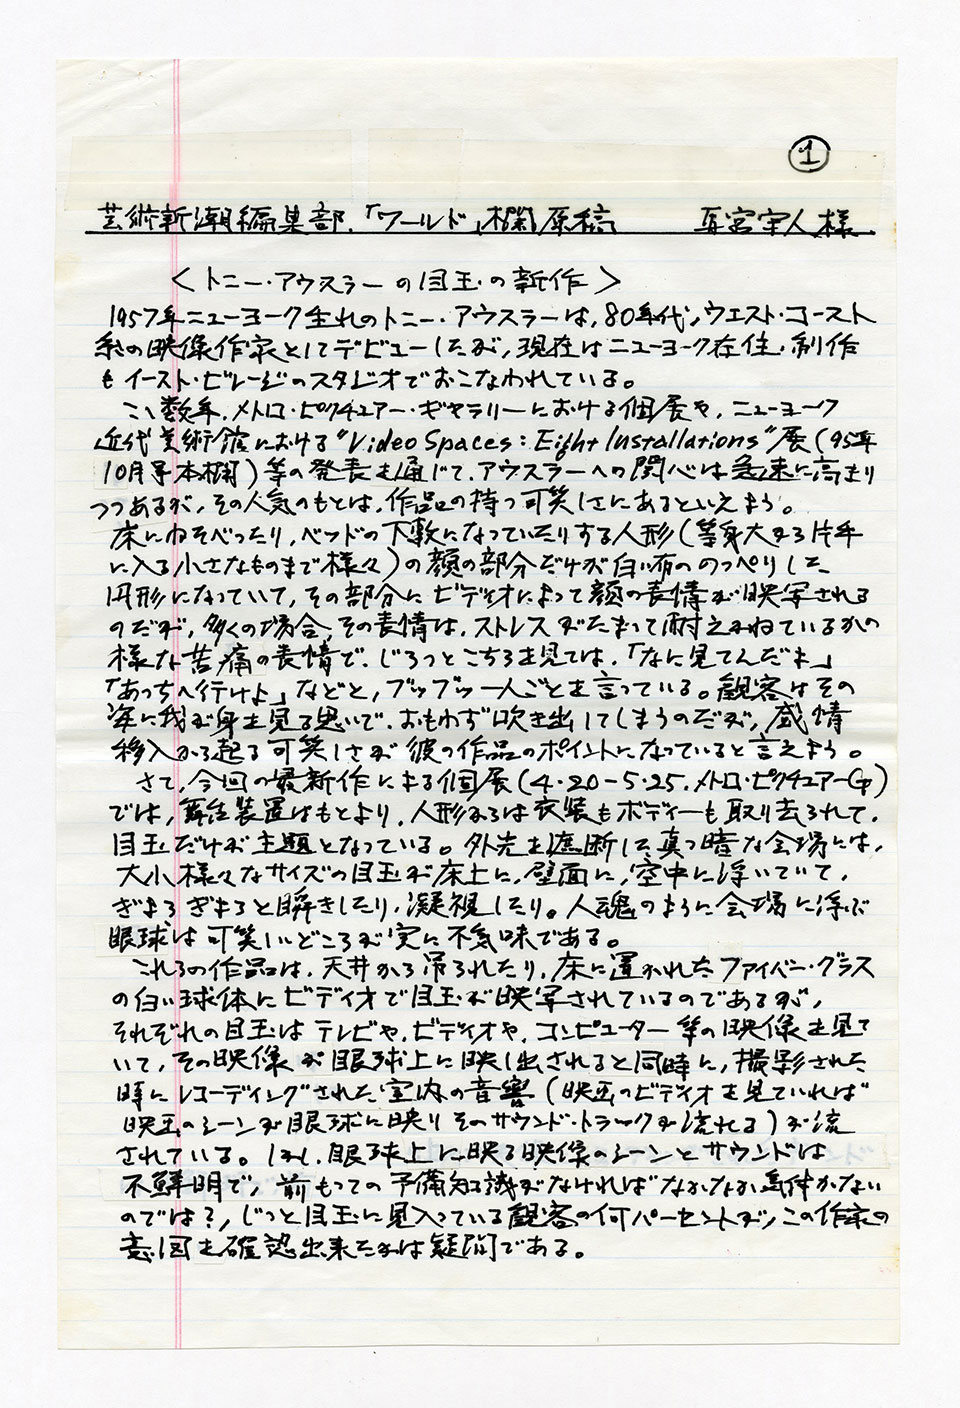 ①
芸術新潮編集部、「ワールド」欄原稿　宮宇人様
＜トニー・アウスラーの目玉の新作＞
1957年ニューヨーク生れのトニー・アウスラーは、80年代、ウエスト・コースト
系の映像作家としてデビューしたが、現在はニューヨーク在住、制作
もイースト・ビレージのスタジオでおこなわれている。
ここ数年、メトロ・ピクチュアー・ギャラリーにおける個展や、ニューヨーク
近代美術館における"Video Spaces: Eight Installations"展（95年
10月号本欄）等の発表を通じて、アウスラーへの関心は急速に高まり
つつあるが、その人気のもとは、作品の持つ可笑しさにあるといえよう。
床にねそべったり、ベッドの下敷になっていたりする人形（等身大から片手
に入る小さなものまで様々）の顔の部分だけが白い布ののっぺりした
円形になっていて、その部分にビディオによって顔の表情が映写される
のだが、多くの場合、その表情は、ストレスがたまって耐えかねているかの
様な苦痛の表情で、じろっとこちらを見ては、「なに見てんだよ」
「あっちへ行けよ」などと、ブツブツ一人ごとを言っている。観客はその
姿に我が身を見る思いで、おもわず吹き出してしまうのだが、感情
移入から起る可笑しさが彼の作品のポイントになっていると言えよう。
さて、今回の最新作による個展（4・20－5・25、メトロ・ピクチュアーG）
では、舞台装置はもとより、人形からは衣装もボディーも取り去られて、
目玉だけが主題となっている。外光を遮断した真っ暗な会場には、
大小様々なサイズの目玉が床上に、壁面に、空中に浮いていて、
ぎょろぎょろと瞬きしたり、凝視したり。人魂のように会場に浮ぶ
眼球は可笑しいどころが実に不気味である。
これらの作品は、天井から吊られたり、床に置かれたファイバー・グラス
の白い球体にビディオで目玉が映写されているのであるが、
それぞれの目玉はテレビや、ビディオや、コンピューター等の映像を見て
いて、その映像が眼球上に映し出されると同時に、撮影された
時にレコーディングされた室内の音響（映画のビディオを見ていれば
映画のシーンが眼球に映りそのサウンド・トラックが流れる）が流
されている。しかし、眼球上に映る映像のシーンとサウンドは
不鮮明で、前もっての予備知識がなければなかなか気付かない
のでは？、じっと目玉に見入っている観客の何パーセントが、この作家の
意図を確認出来たかは疑問である。